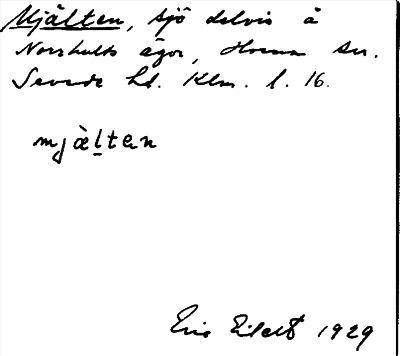 Mjälten, sjö delvis å
Norrhults ägor, sn.
Sevede hd. Klm. l. 16.
mjäl̲ten
Eric 1929